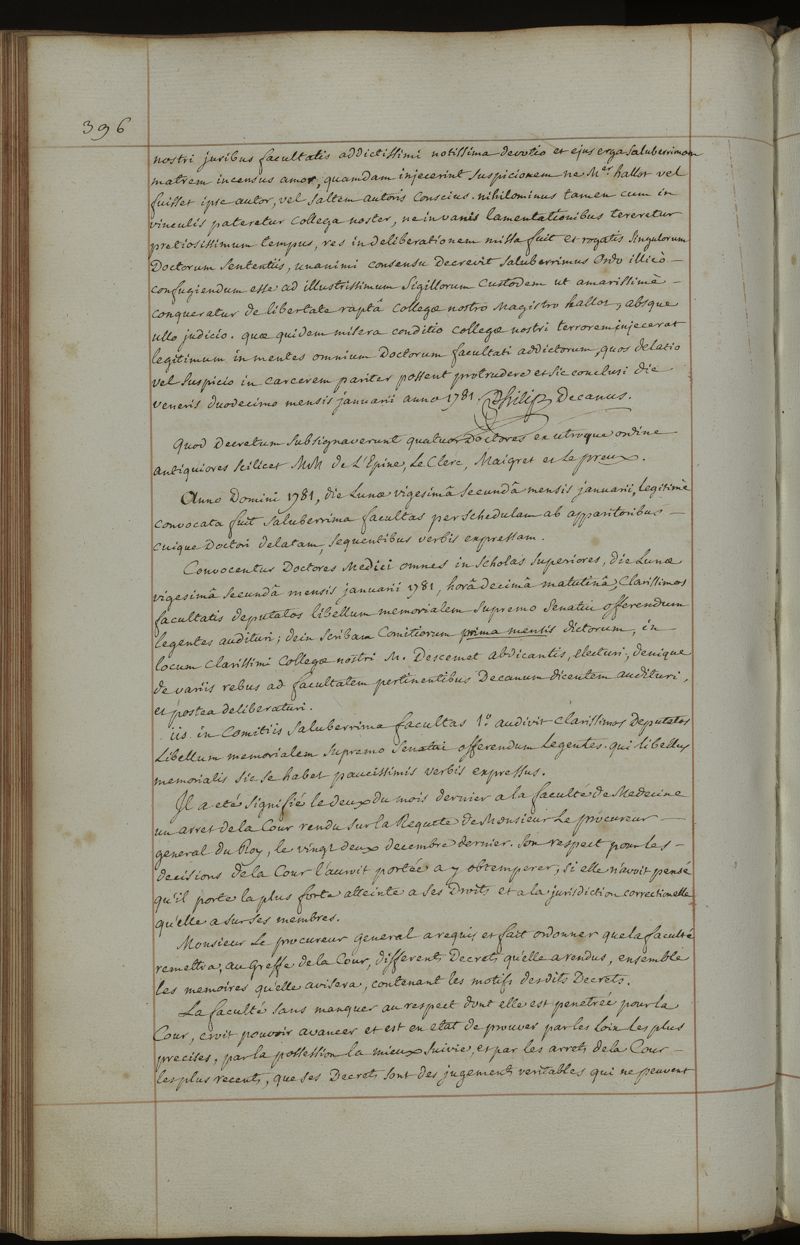 396
nostri juribus facultatis addictissimi notissima devotio et ejus erga saluberrimam
matrem incensus amor, quamdam injecerint suspicionem ne M.er hallot vel
fuisset ipse autor, vel saltem autoris conscius. nihilominus tamen cum in
vinculis pateretur collega noster, ne in vanis lamentationibus tereretur
pretiosissimum tempus, res in deliberationem missa fuit et rogatis singulorum
Doctorum sententiis, unanimi consensu decrevit saluberrimus ordo illico –
confugiendum esse ad illustrissimum sigillorum custodem ut amarissimè –
conqueratur de libertate raptâ collegæ nostro Magistro hallot, absque
ullo judicio. quæ quidem misera conditio collegæ nostri terrorem injecerat
legitimum in mentes omnium Doctorum facultati addictorum, quos delatio
vel suspicio in carcerem pariter possent protrudere et sic conclusi die
veneris duodecimo mensis januarii anno 1781. Philip Decanus.
Quod Decretum subsignaverunt quatuor Doctores ex utroque ordine
antiquiores scilicet MM de L'Epine, Le Clerc, Maigret et Le preux.
Anno Domini 1781, die Lunæ vigesimâ secundâ mensis januarii, legitimè
convocata fuit saluberrima facultas per schedulam ab apparitoribus –
cuique Doctori delatam, sequentibus verbis expressam.
Convocentur Doctores Medici omnes in scholas superiores, die Lunæ
vigesimâ secundâ mensis januarii 1781, horâ decimâ matutinâ, clarissimos
facultatis deputatos libellum memorialem supremo senatui offerendum
legentes audituri; dein scribam comitiorum prima mensis dictorum, in
locum clarissimi collegæ nostri M. Descemet abdicantis, electuri, denique
de variis rebus ad facultatem pertinentibus Decanum dicentem audituri,
et postea deliberaturi.
iis in comitiis saluberrima facultas 1.º audivit clarissimos deputatos
Libellum memorialem supremo senatui offerendum legentes. qui libellus
memorialis sic se habet paucissimis verbis expressus.
Il a eté signifié le deux du mois dernier a la faculté de Medecine
un arret de la Cour rendu sur la Requete de Monsieur Le procureur –
general du Roy, le vingt deux decembre dernier. son respect pour les –
decisions de la Cour l'auroit portée a y obtemperer, si elle n'avoit pensé
qu'il porte la plus forte atteinte a ses Droits et a la jurisdiction correctionelle
qu'elle a sur ses membres.
Monsieur Le procureur general a requis et fait ordonner que la faculté
remettra, au Greffe de la Cour, differents Decrets qu'elle a rendus, ensemble
les memoires qu'elle avisera, contenant les motifs desdits Decrets.
La faculté sans manquer au respect dont elle est penetrée pour la
Cour, croit pouvoir avancer et est en etat de prouver par les loix les plus
precises, par la possession la mieux suivie, et par les arrets de la Cour –
les plus recents, que ses Decrets sont des jugements veritables qui ne peuvent